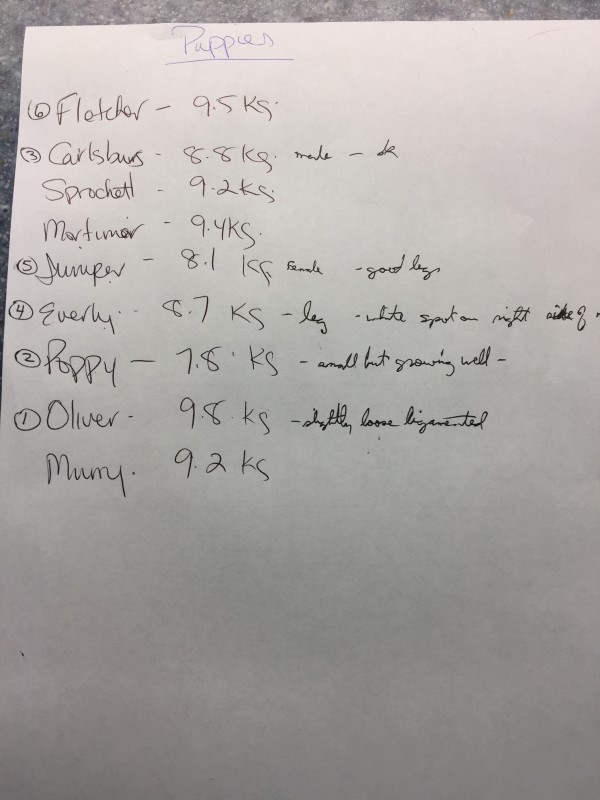 Puppies
⑥ Fletcher - 9.5 KG.
③ Carlsburg - 8.8 KG. male - ok
Sprochett - 9.2 KG.
Mortimer - 9.4 KG.
⑤ Juniper - 8.1 KG Female - good legs
④ Everly - 8.7 KG - leg - white spot on right side of
② Poppy - 7.8 KG - small but growing well -
① Oliver - 9.8 KG - slightly loose ligamented
Murry. 9.2 KG